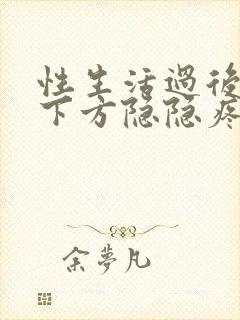 性生活過後
下方隐隐疼
余夢凡